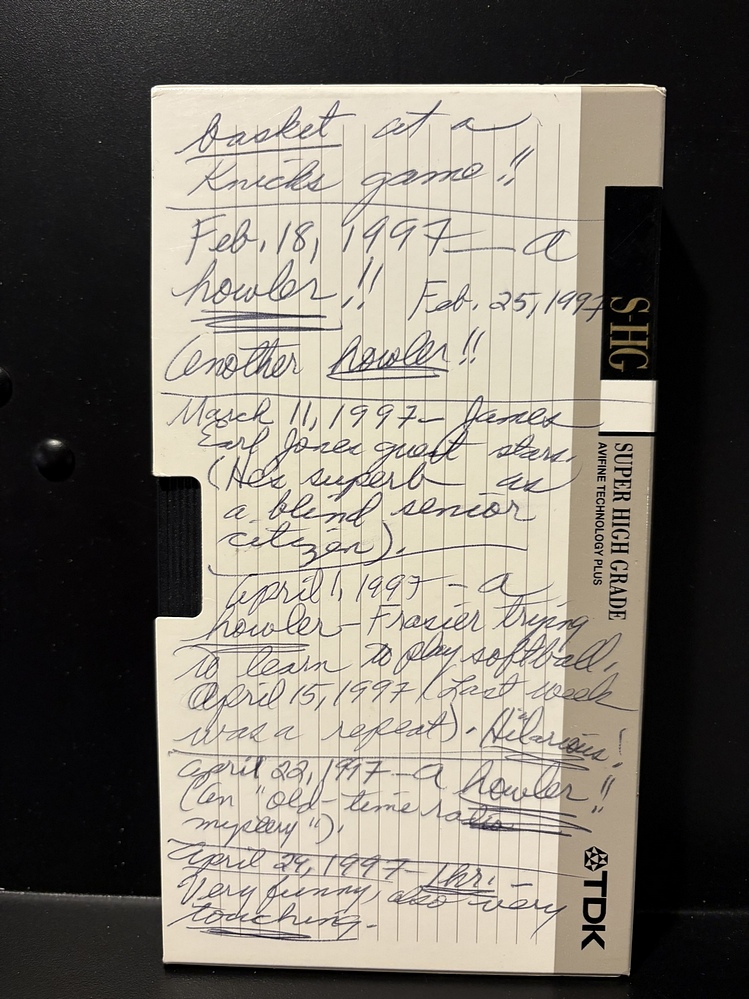 basket at a
Knicks game!!
Feb. 18, 1997 — a
howler!! Feb. 25, 1997
another howler!!
March 11, 1997 — James
Earl Jones guest stars.
(He's superb as
a blind senior
citizen).
April 1, 1997 — a
howler — Frasier trying
to learn to play softball.
April 15, 1997 (Last week
was a repeat). Hilarious!
April 22, 1997 — a howler!!
(an "old-time radio
mystery").
April 29, 1997 — 1 hr.
Very funny, also very
touching.
S-HG
SUPER HIGH GRADE
AVIFINE TECHNOLOGY PLUS
TDK